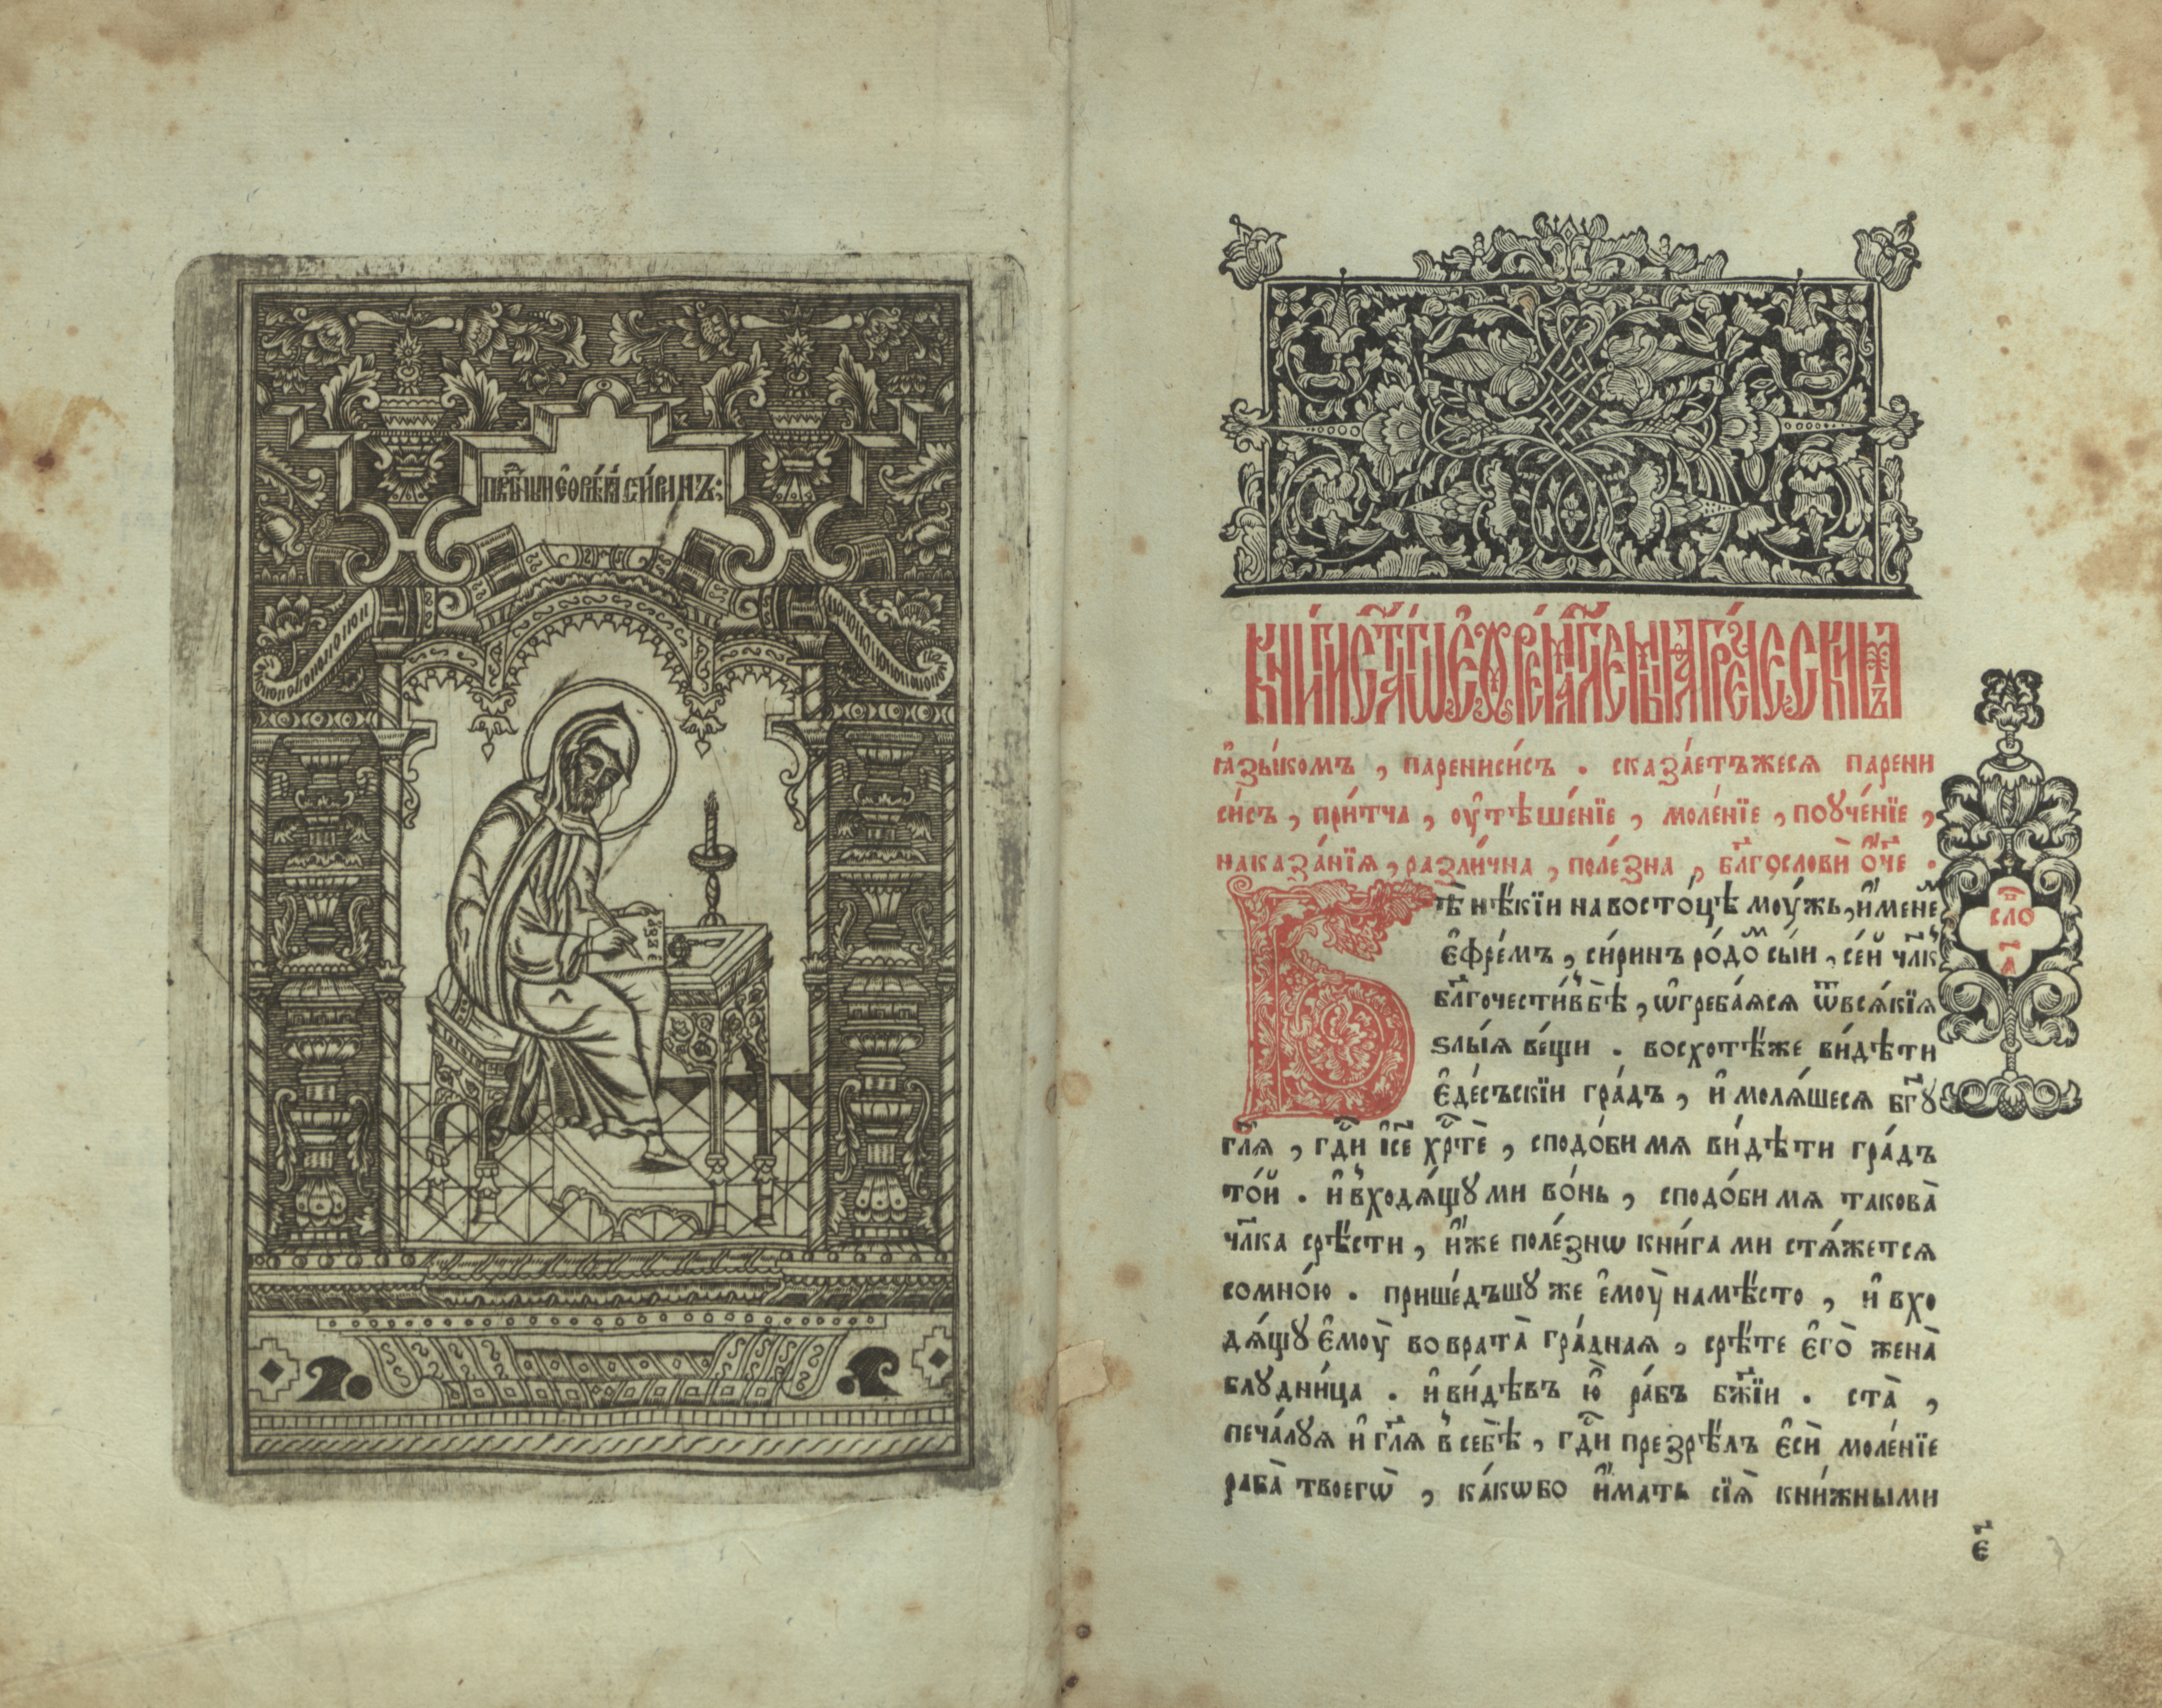 прпⷣбныи єфрємъ сиринъ:
КНИГИ СТ҃АГѠ ЄѲРЕМА ГЛЕМЫѦ ГРЕЧЕСКИМЪ
ꙗ҆зы́комъ , паренисі́съ . сказа́етъжеся парени
си́съ , при́тча , ѹ҆тѣше́нїе , моле́нїе , поꙋче́нїе ,
наказа́нїѧ , разли́чна , поле́зна , бл҃гослови ѻ҆́ч҃е .
Бѣ̀ нѣ́кїи на восто́цѣ мѹ́жь , и҆́менеⷨ
є҆фре́мъ , си́ринъ ро́доⷨ сы́и , се́й чл҃къ
бл҃гочести́въ бѣ̀ , ѡ҆греба́ѧсѧ ѿвсѧ́кїѧ
ѕлы́ѧ ве́щи . восхотѣ́же ви́дѣти
є҆де́съскїи гра́дъ , и҆ молѧ́шесѧ бг҃ꙋ
сло а҃
гл҃ѧ , гдⷭ҇и і҆с҃е хрⷭ҇тѐ , сподо́би мѧ ви́дѣти гра́дъ
то́й . и҆ вхо́дѧ́щꙋ ми во́нь , сподо́би мѧ такова̀
чл҃ка срѣ́сти , и҆́же поле́знѡ кни́га ми стѧ́жетсѧ
сомно́ю . прише́дъшꙋ же є҆мѹ̀ намѣ́сто , и҆ вхо
дѧ́щꙋ є҆мѹ̀ во врата̀ гра́днаѧ , срѣ́те є҆го̀ жена̀
блꙋдни́ца . и҆ ви́дѣвъ ю҆̀ ра́бъ бж҃їи . ста̀ ,
печа́лꙋѧ и҆ гл҃ѧ в себѣ̀ , гдⷭ҇и презрѣ́лъ є҆сѝ моле́нїе
раба̀ твоегѡ̀ , ка́кѡбо и҆́мать сїѧ̀ кни́жными
є҃